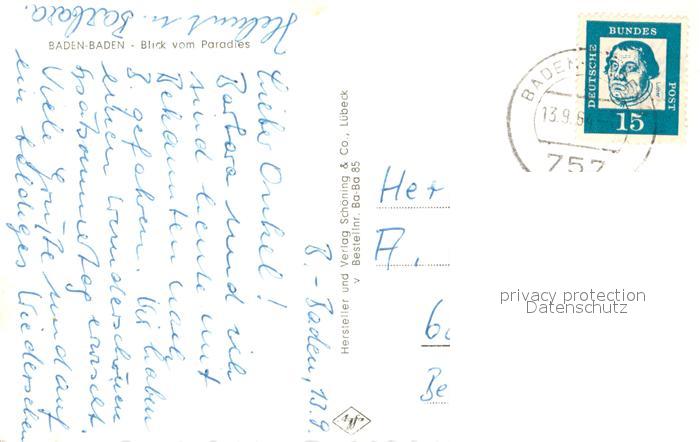 BADEN-BADEN - Blick vom Paradies
B.-Baden, 13.9.
Lieber Onkel!
Barbara und ich
sind heute mit
Bekannten nach
B. gefahren. Wir haben
einen wunderschönen
Spätsommertag erwischt
Viele Grüße und auf
ein baldiges Wiedersehen
Helmut u. Barbara.
Hersteller und Verlag Schöning & Co., Lübeck
v Bestellnr. Ba-Ba 85
Agfa
DEUTSCHE BUNDES POST
Luther
15
BADEN
13.9.6
757
Her
A.
6
Be
privacy protection
Datenschutz